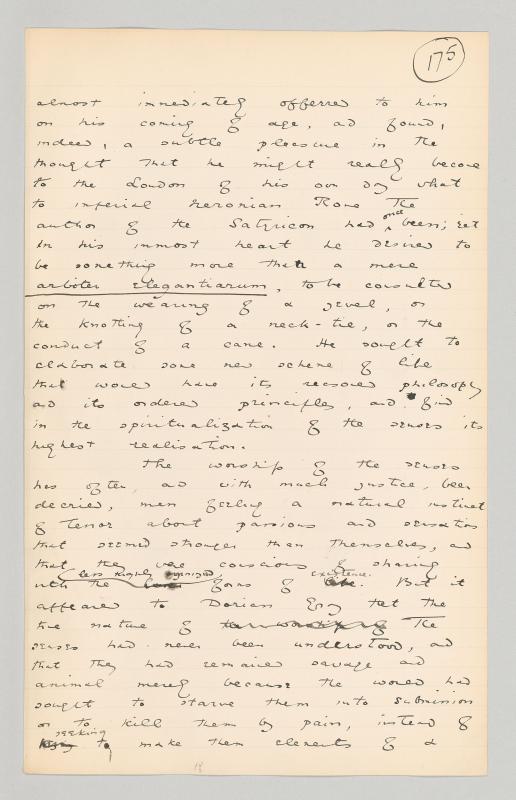 175
almost immediately offered to him
on his coming of age, and found,
indeed, a subtle pleasure in the
thought that he might really become
to the London of his own day what
to imperial Neronian Rome the
author of the Satyricon had once been; yet
in his inmost heart he desired to
be something more than a mere
arbiter elegantiarum, to be consulted
on the wearing of a jewel, or
the knotting of a neck-tie, or the
conduct of a cane. He sought to
elaborate some new scheme of life
that would have its reasoned philosophy
and its ordered principles, and find
in the spiritualization of the senses its
highest realisation.
The worship of the senses
has often, and with much justice, been
decried, men feeling a natural instinct
of terror about passions and sensations
that seemed stronger than themselves, and
that they were conscious of sharing
with the less highly organised forms of existence. But it
appeared to Dorian Gray that the
true nature of the
senses had never been understood, and
that they had remained savage and
animal merely because the world had
sought to starve them into submission
or to kill them by pain, instead of
seeking to make them elements of a